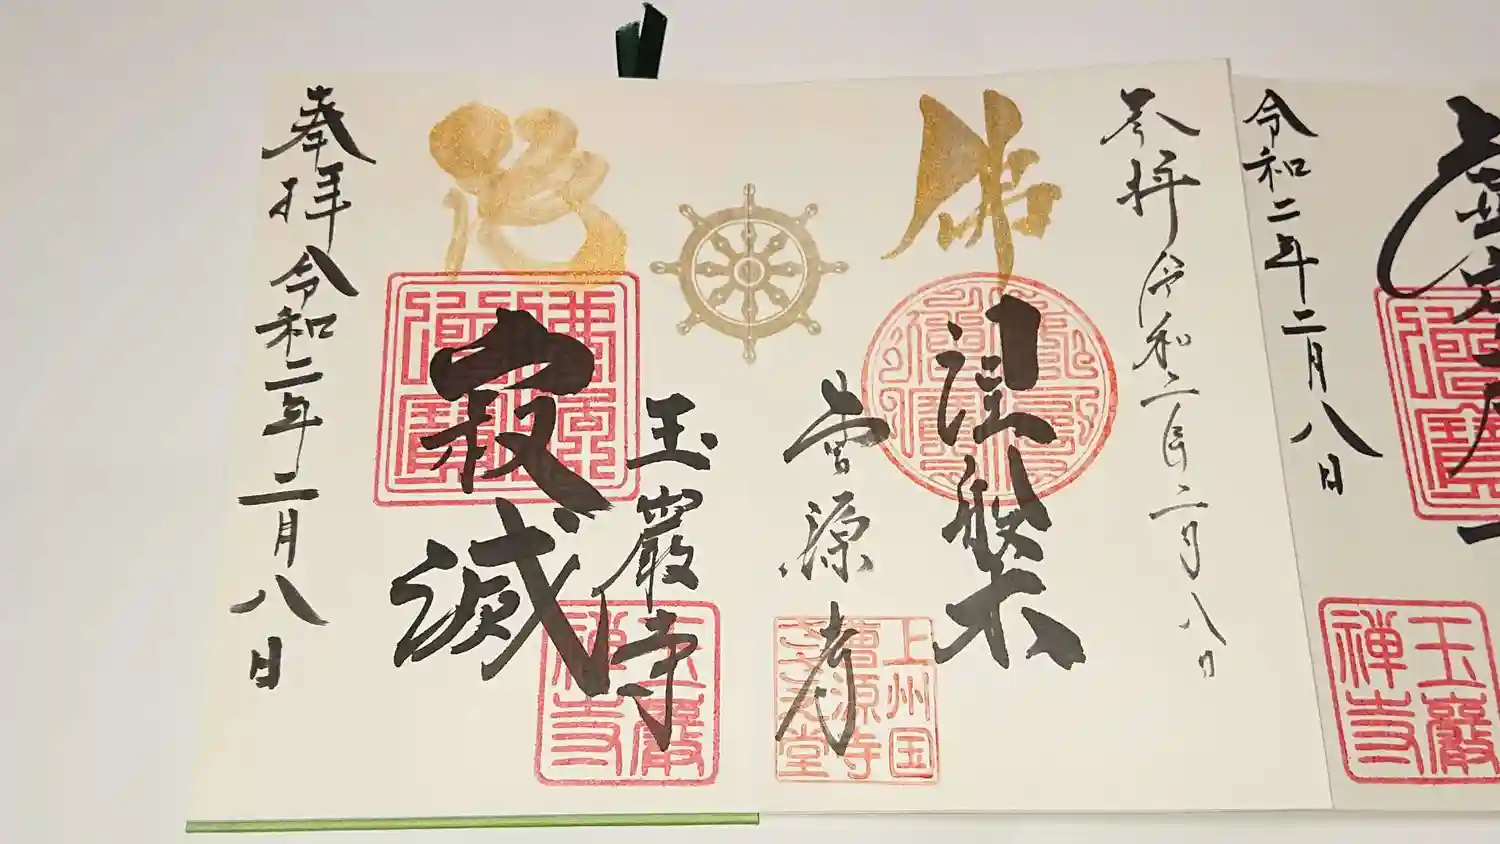 令和二年二月八日
玉巖
禪寺
奉拝 令和二年二月八日
佛
涅槃
曹源寺
上州国
曹源寺
さざえ堂
玉巖寺
寂滅
玉巖
禪寺
奉拝 令和二年二月八日